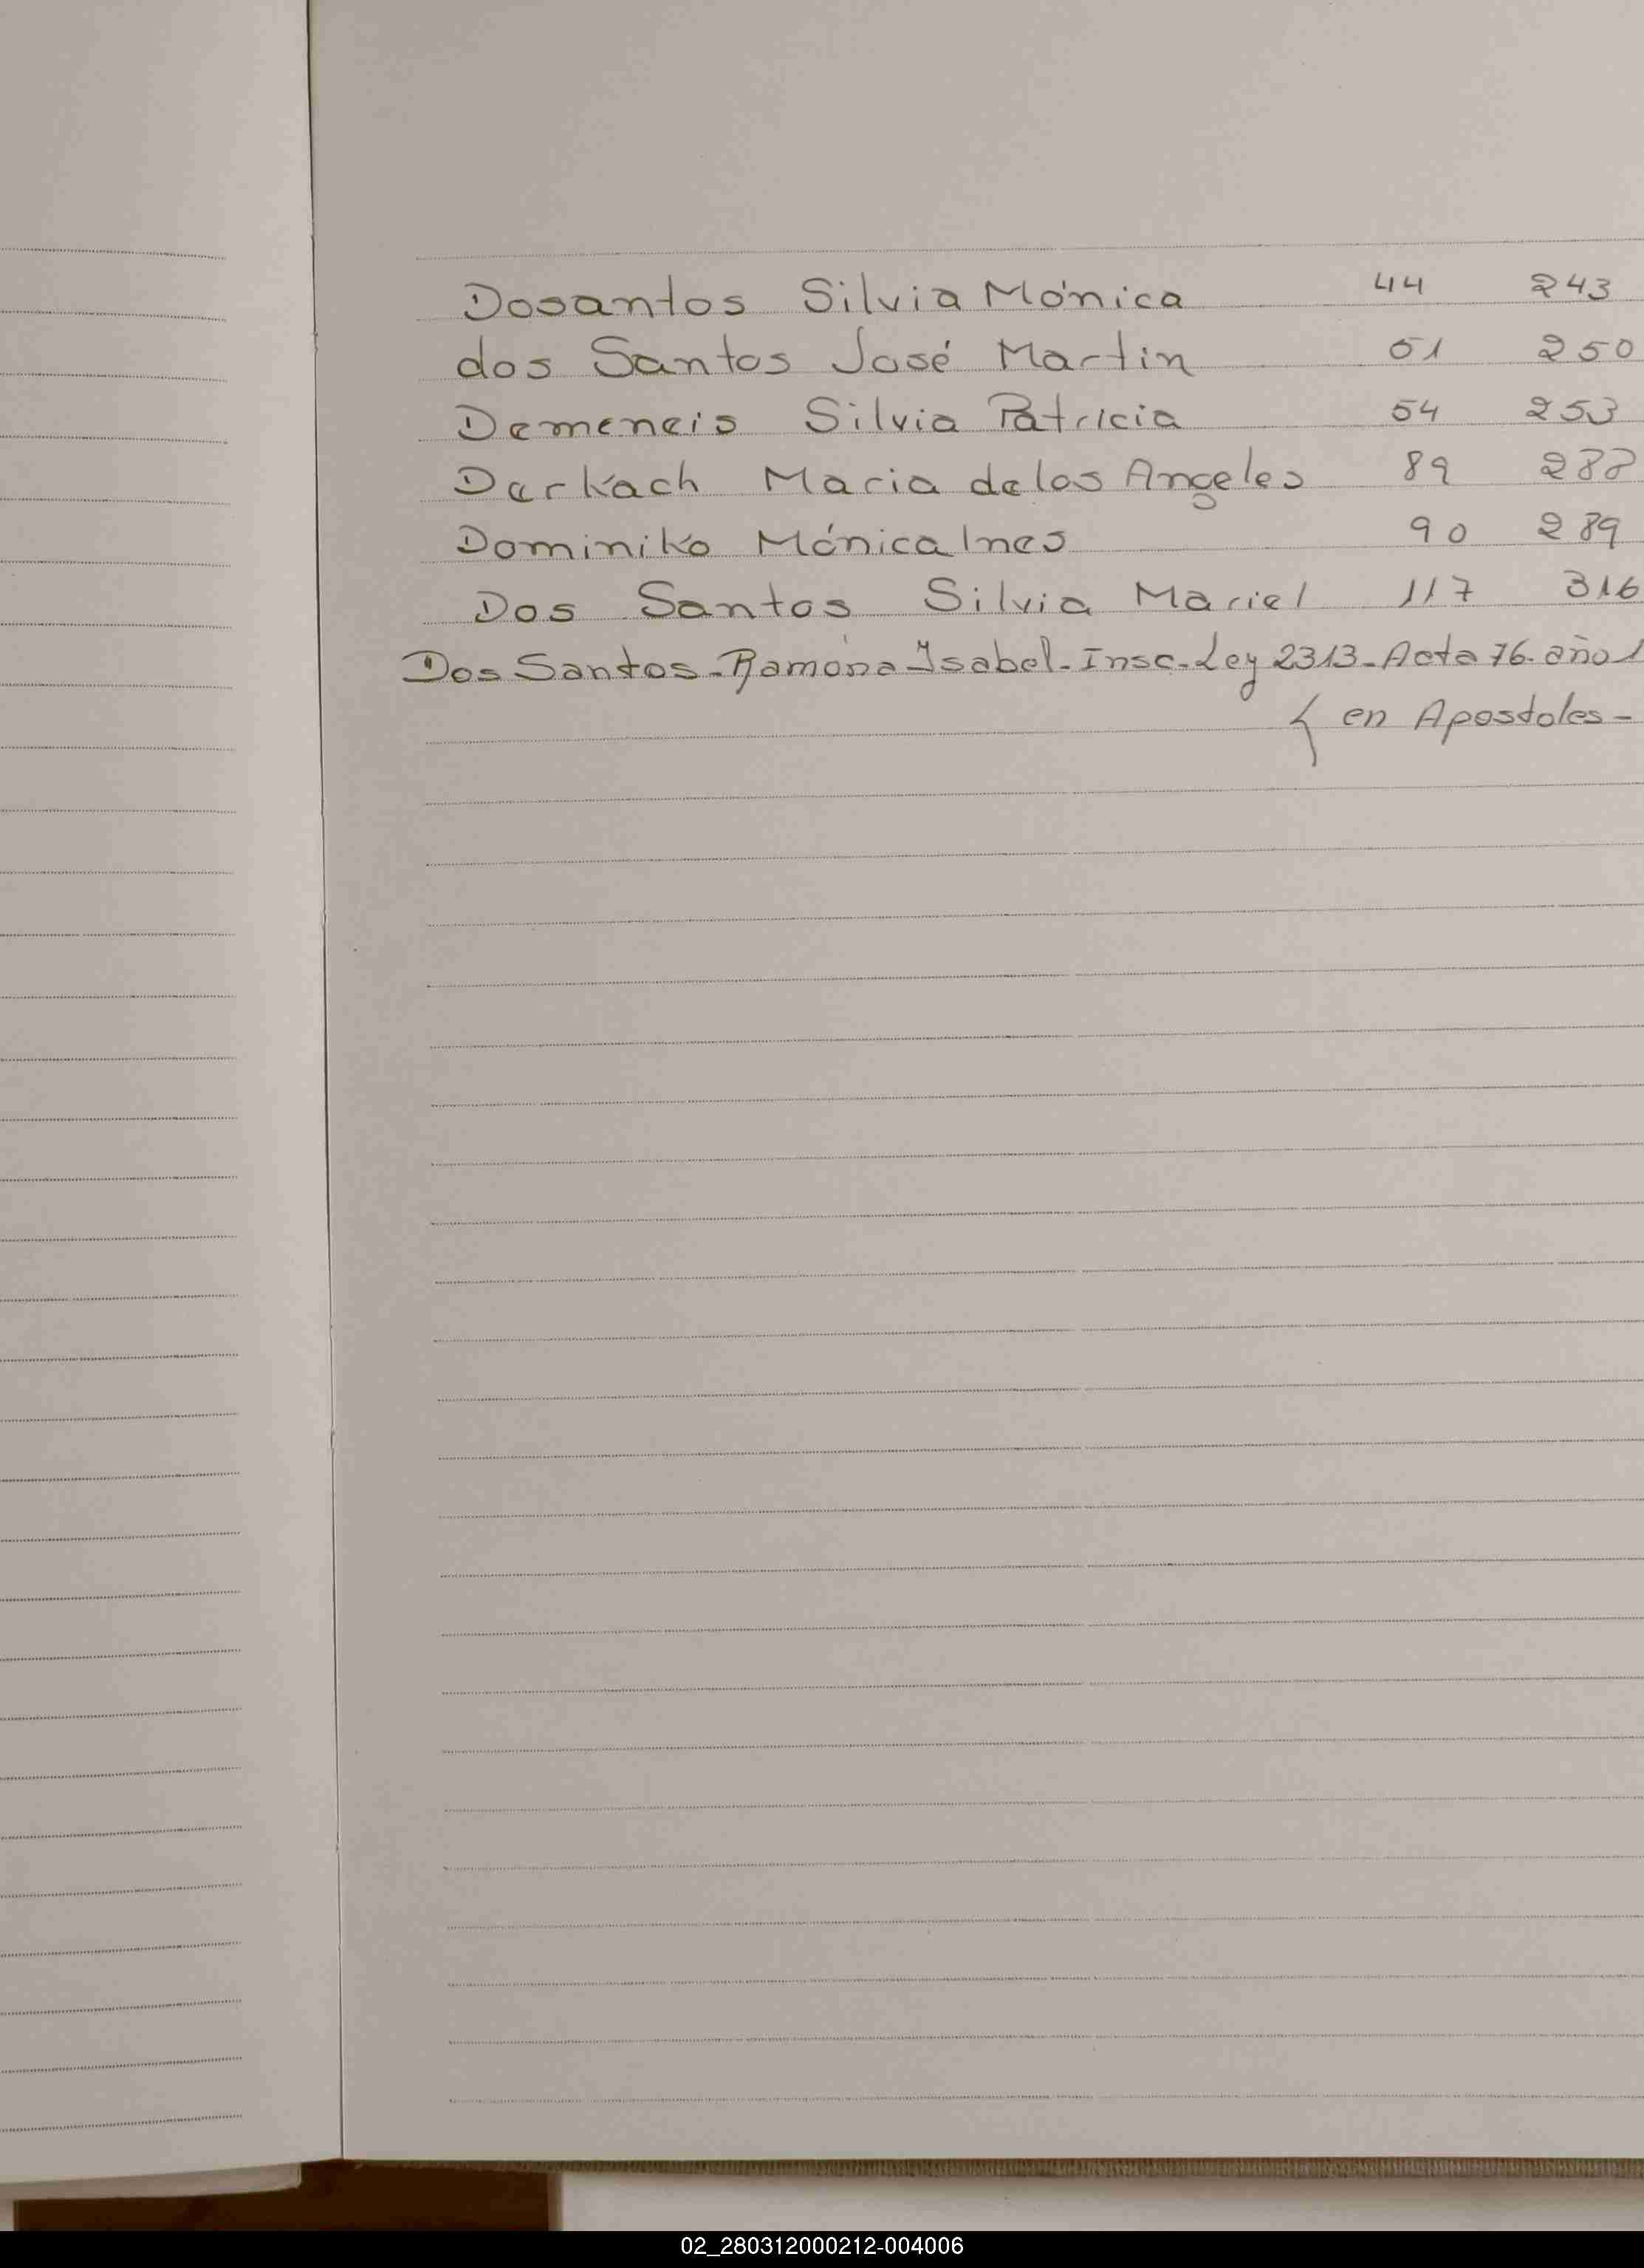 Dosantos Silvia Mónica 44 243
dos Santos José Martin 51 250
Demeneis Silvia Patricia 54 253
Derkach Maria de los Angeles 89 288
Dominiko Mónica Ines 90 289
Dos Santos Silvia Mariel 117 316
Dos Santos - Ramona Isabel - Insc - Ley 2313 - Acta 76 - año 1
en Apostoles -
02_280312000212-004006